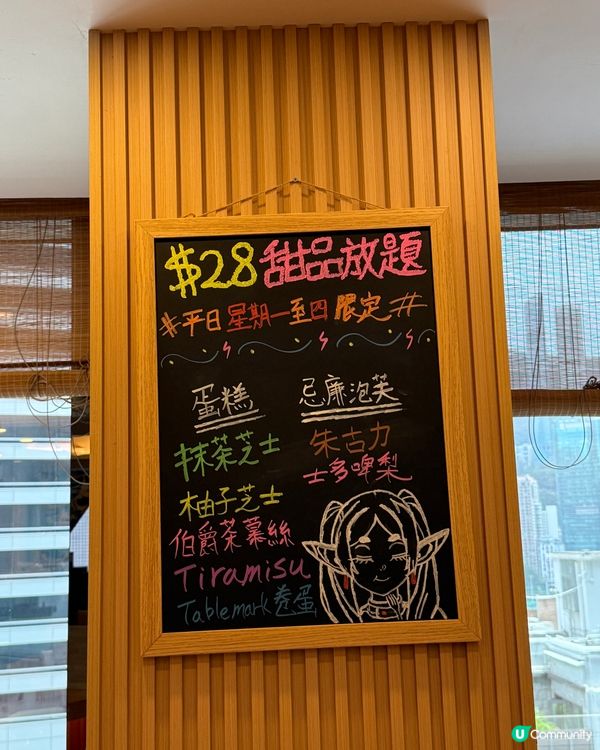 $28甜品放題
#平日星期一至四限定#
蛋糕
抹茶芝士
柚子芝士
伯爵茶慕絲
Tiramisu
Tablemark卷蛋
忌廉泡芙
朱古力
士多啤梨
U Community